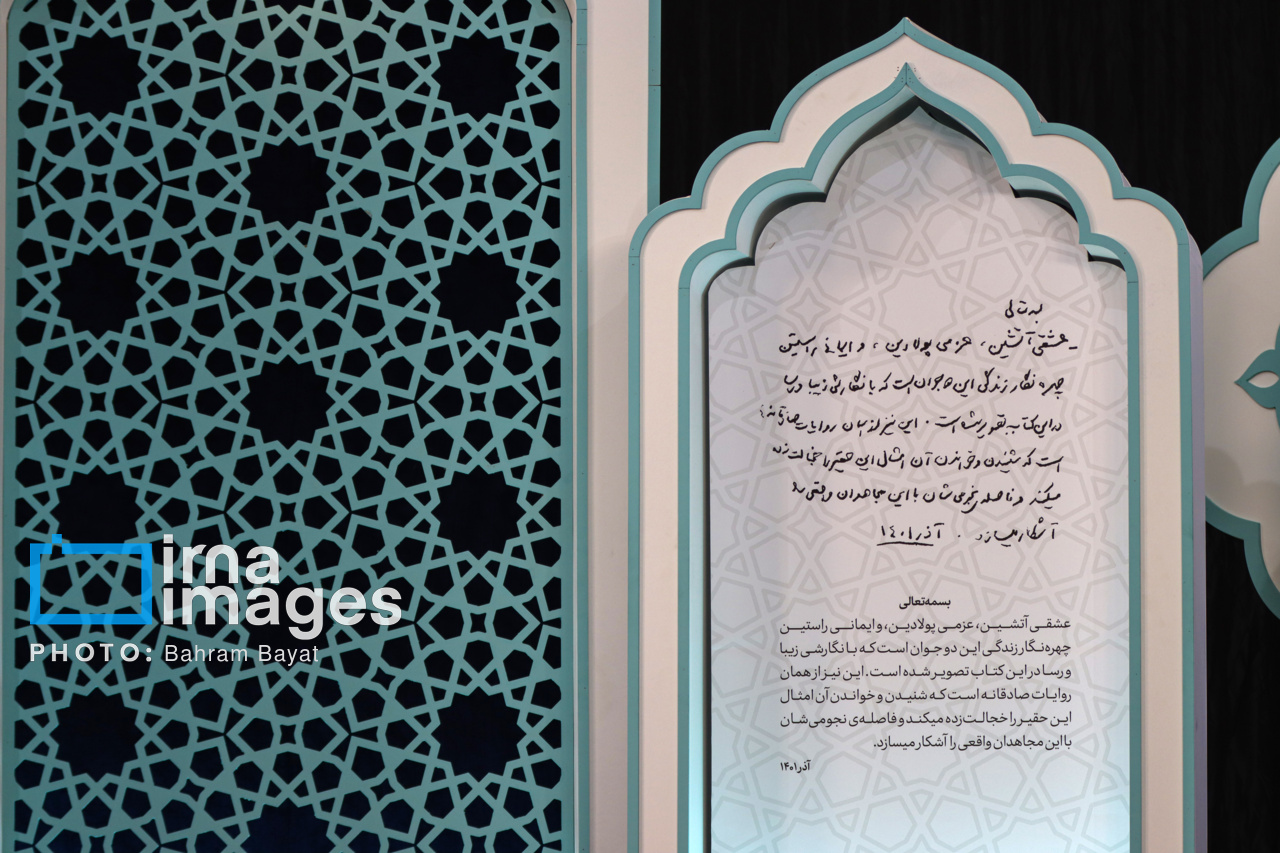 بسمه‌تعالی
عشقی آتشین، عزمی پولادین، و ایمانی راستین
چهره نگار زندگی این دو جوان است که با نگارشی زیبا و رسا
در این کتاب تصویر شده است. این نیز از همان روایات صادقانه
است که شنیدن و خواندن آن امثال این حقیر را خجالت زده
میکند و فاصله‌ی نجومی شان با این مجاهدان واقعی را
آشکار میسازد. آذر ۱۴۰۱
بسمه‌تعالی
عشقی آتشین، عزمی پولادین، و ایمانی راستین
چهره‌نگار زندگی این دو جوان است که با نگارشی زیبا
و رسا در این کتاب تصویر شده است. این نیز از همان
روایات صادقانه است که شنیدن و خواندن آن امثال
این حقیر را خجالت‌زده میکند و فاصله‌ی نجومی‌شان
با این مجاهدان واقعی را آشکار میسازد.
آذر ۱۴۰۱
irna
images
PHOTO: Bahram Bayat